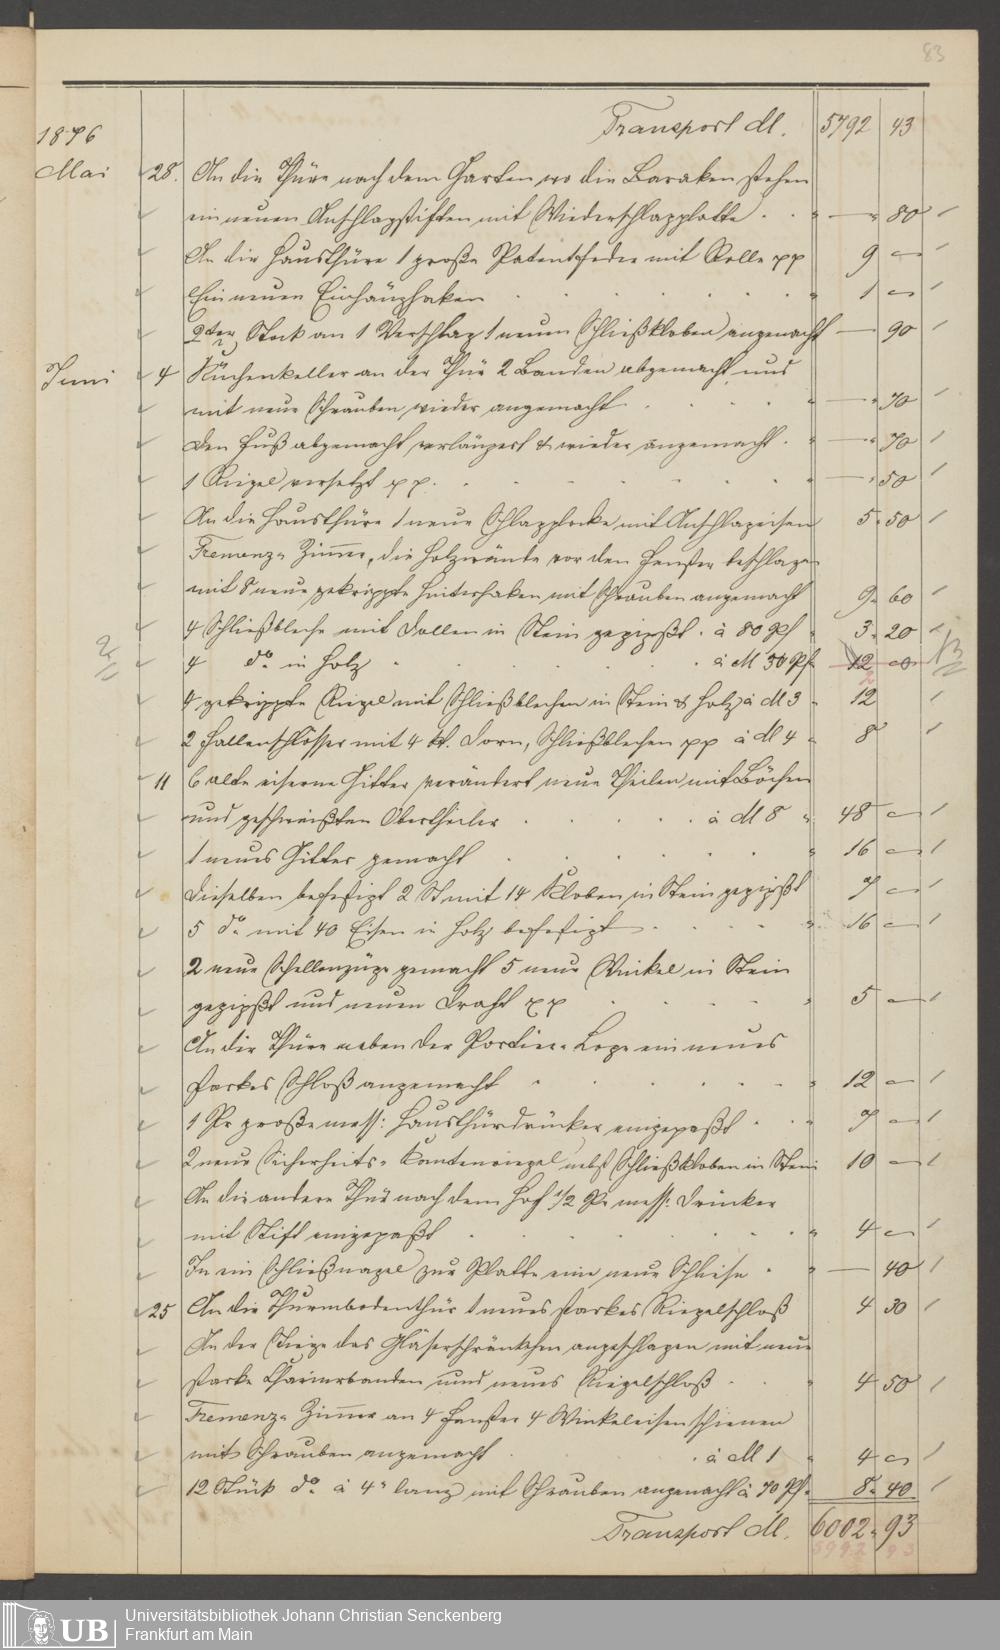 83
Transport M. 5792 43
1876
Mai 28. An die Thüre nach dem Garten wo die Baraken stehen
ein neuen Anschlagstiften mit Wiederschlagplatte . . " — " 80
An die Hausthüre 1 große Patentfeder mit Rolle pp 9 —
Ein neuen Einhänghaken " 1 —
2ter Stock an 1 Verschlag 1 neuen Schließkloben angemacht — 90
Juni 4 Küchenkeller an der Thür 2 Banden abgemacht und
mit neue Schrauben wieder angemacht " — " 70
den Fuß abgemacht verlängert & wieder angemacht . " — " 70
1 Riegel versetzt pp. " — " 50
An die Hausthüre 1 neue Schlagglocke mit Anschlageisen 5 " 50
Fremenz " Zimmer, die Holzwände vor den Fenster beschlagen
mit 8 neue gekrippte Hinterhaken mit Schrauben angemacht 9 " 60
4 Schließbleche mit Dollen in Stein gegipßt . à 80 Pf " 3 " 20
4 do in Holz . à M 30 Pf " 12 —
4 gekrippte Riegel mit Schließblechen in Stein & Holz à M 3 " 12
2 Fallenschlösser mit 4 kt. Dorn, Schließblechen pp à M 4 " 8
11 6 alte eiserne Gitter verändert neue Theilen mit Böchen
und geschweißten Obertheiler . à M 8 " 48 —
1 neues Gitter gemacht " 16 —
dieselben befestigt 2 St mit 14 Kloben in Stein gegipßt 7 —
5 do mit 40 Eisen in Holz befestigt " 16 —
2 neue Schellenzüge gemacht 5 neue Winkel in Stein
gegipßt und neuen Draht pp " 5 —
An die Thüre neben der Portier-Loge ein neues
starkes Schloß angemacht " 12 —
1 Pr große mess: Hausthürdrücker eingepaßt . . " 7 —
2 neue Sicherheits- Kantenriegel nebst Schließkloben in Stein 10 —
An die andere Thür nach dem Hof 1/2 Pr mess: Drücker
mit Stift eingepaßt " 4 —
In ein Schließnagel zur Platte eine neue Scheise . " — 40
25 An die Thurmbodenthür 1 neues starkes Riegelschloß 4 30
An der Stiege das Gläserschränkchen angeschlagen mit neue
starke Charnirbanden und neues Riegelschloß . " 4 50
Fremenz " Zimmer an 4 Fenster 4 Winkeleisenschienen
mit Schrauben angemacht . à M 1 " 4 —
12 Stück do à 4" lang mit Schrauben angemacht à 70 Pf " 8 " 40
Transport M. 6002 " 93
5992 93
Universitätsbibliothek Johann Christian Senckenberg
Frankfurt am Main
UB